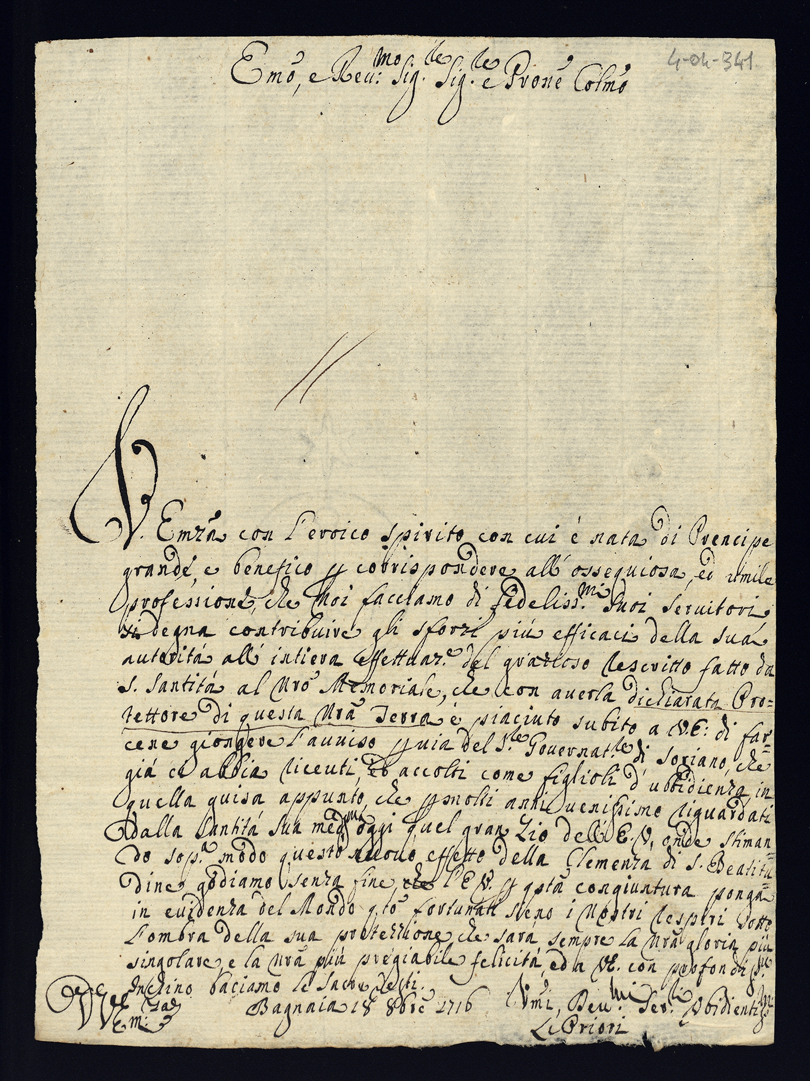 4-04-341
Emo, e Reu:mo Sig.r Sig.re e Prone Colmo
V. Emza con l'eroico spirito con cui è nata di Prencipe
grande, e benefico p corrispondere all' ossequiosa, ed umile
professione, che Noi facciamo di fedeliss.mi Suoi Servitori
si degna contribuire gli sforzi più efficaci della sua
autorità all' intiera effettuaz.ne del grazioso Rescritto fatto da
S. Santità al Nro Memoriale, che con averla dichiarata Pro-
tettore di questa Nra Terra è piaciuto subito a V.E: di far-
cene giongere l'auuiso p uia del S.re Governat.re di Soriano, che
già ci abbia riceuti, ed accolti come figlioli d'ubbidienza in
quella guisa appunto, che p molti anni uenissimo riguardati
dalla Santità Sua med.ma oggi quel gran Zio dell' E.V, onde stiman-
do sop.a modo questo nuouo effetto della Clemenza di S. Beatitu-
dine godiamo senza fine che l'E.V. p qsta congiuntura ponga
in euidenza del Mondo qto fortunati sieno i Nostri respiri sotto
l'ombra della sua protezzione che sarà sempre la Nra gloria più
singolare, e la Nra più pregiabile felicità, ed a VE. con profondiss.mo
Inchino baciamo le Sacre Vesti.
Bagnaia 18 8bre 1716
Umi, Deu.mi Ser.ri Obidientis.mi
Li Priori